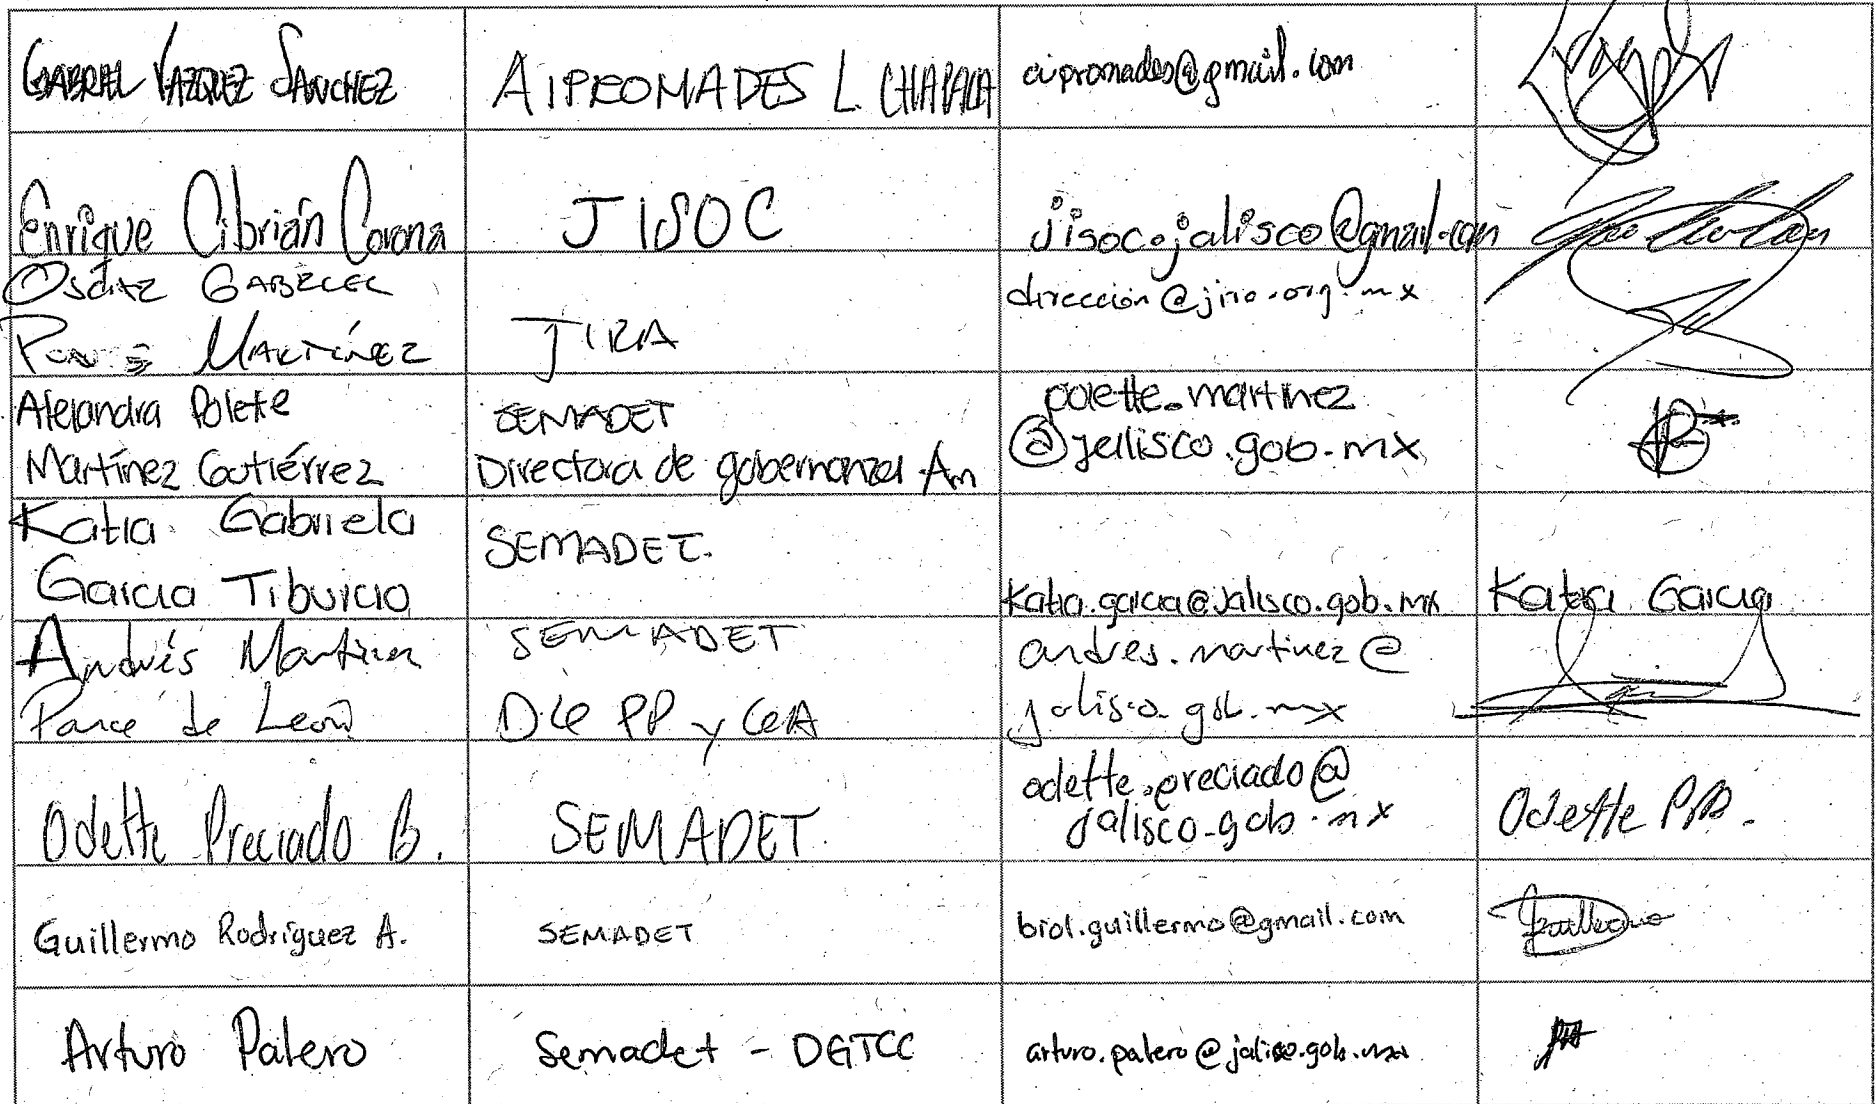 GABRIEL VAZQUEZ SANCHEZ
AIPROMADES L. CHAPALA
aipromades@gmail.com
Enrique Cibrián Corona
JISOC
jisoc.jalisco@gmail.com
Oscar Gabriel
Ponce Martínez
JIRA
dirección@jira.org.mx
Alejandra Polete
Martínez Gutiérrez
SEMADET
Directora de gobernanza Am
polette.martinez
@jalisco.gob.mx
Katia Gabriela
Garcia Tiburcio
SEMADET.
Katia.garcia@jalisco.gob.mx
Katia Garcia
Andrés Martínez
Ponce de León
SEMADET
DG PP y GA
andres.martinez@
jalisco.gob.mx
Odette Preciado B.
SEMADET
odette.preciado@
jalisco.gob.mx
Odette PB.
Guillermo Rodríguez A.
SEMADET
biol.guillermo@gmail.com
Guillermo
Arturo Palero
Semadet - DGTCC
arturo.palero@jalisco.gob.mx